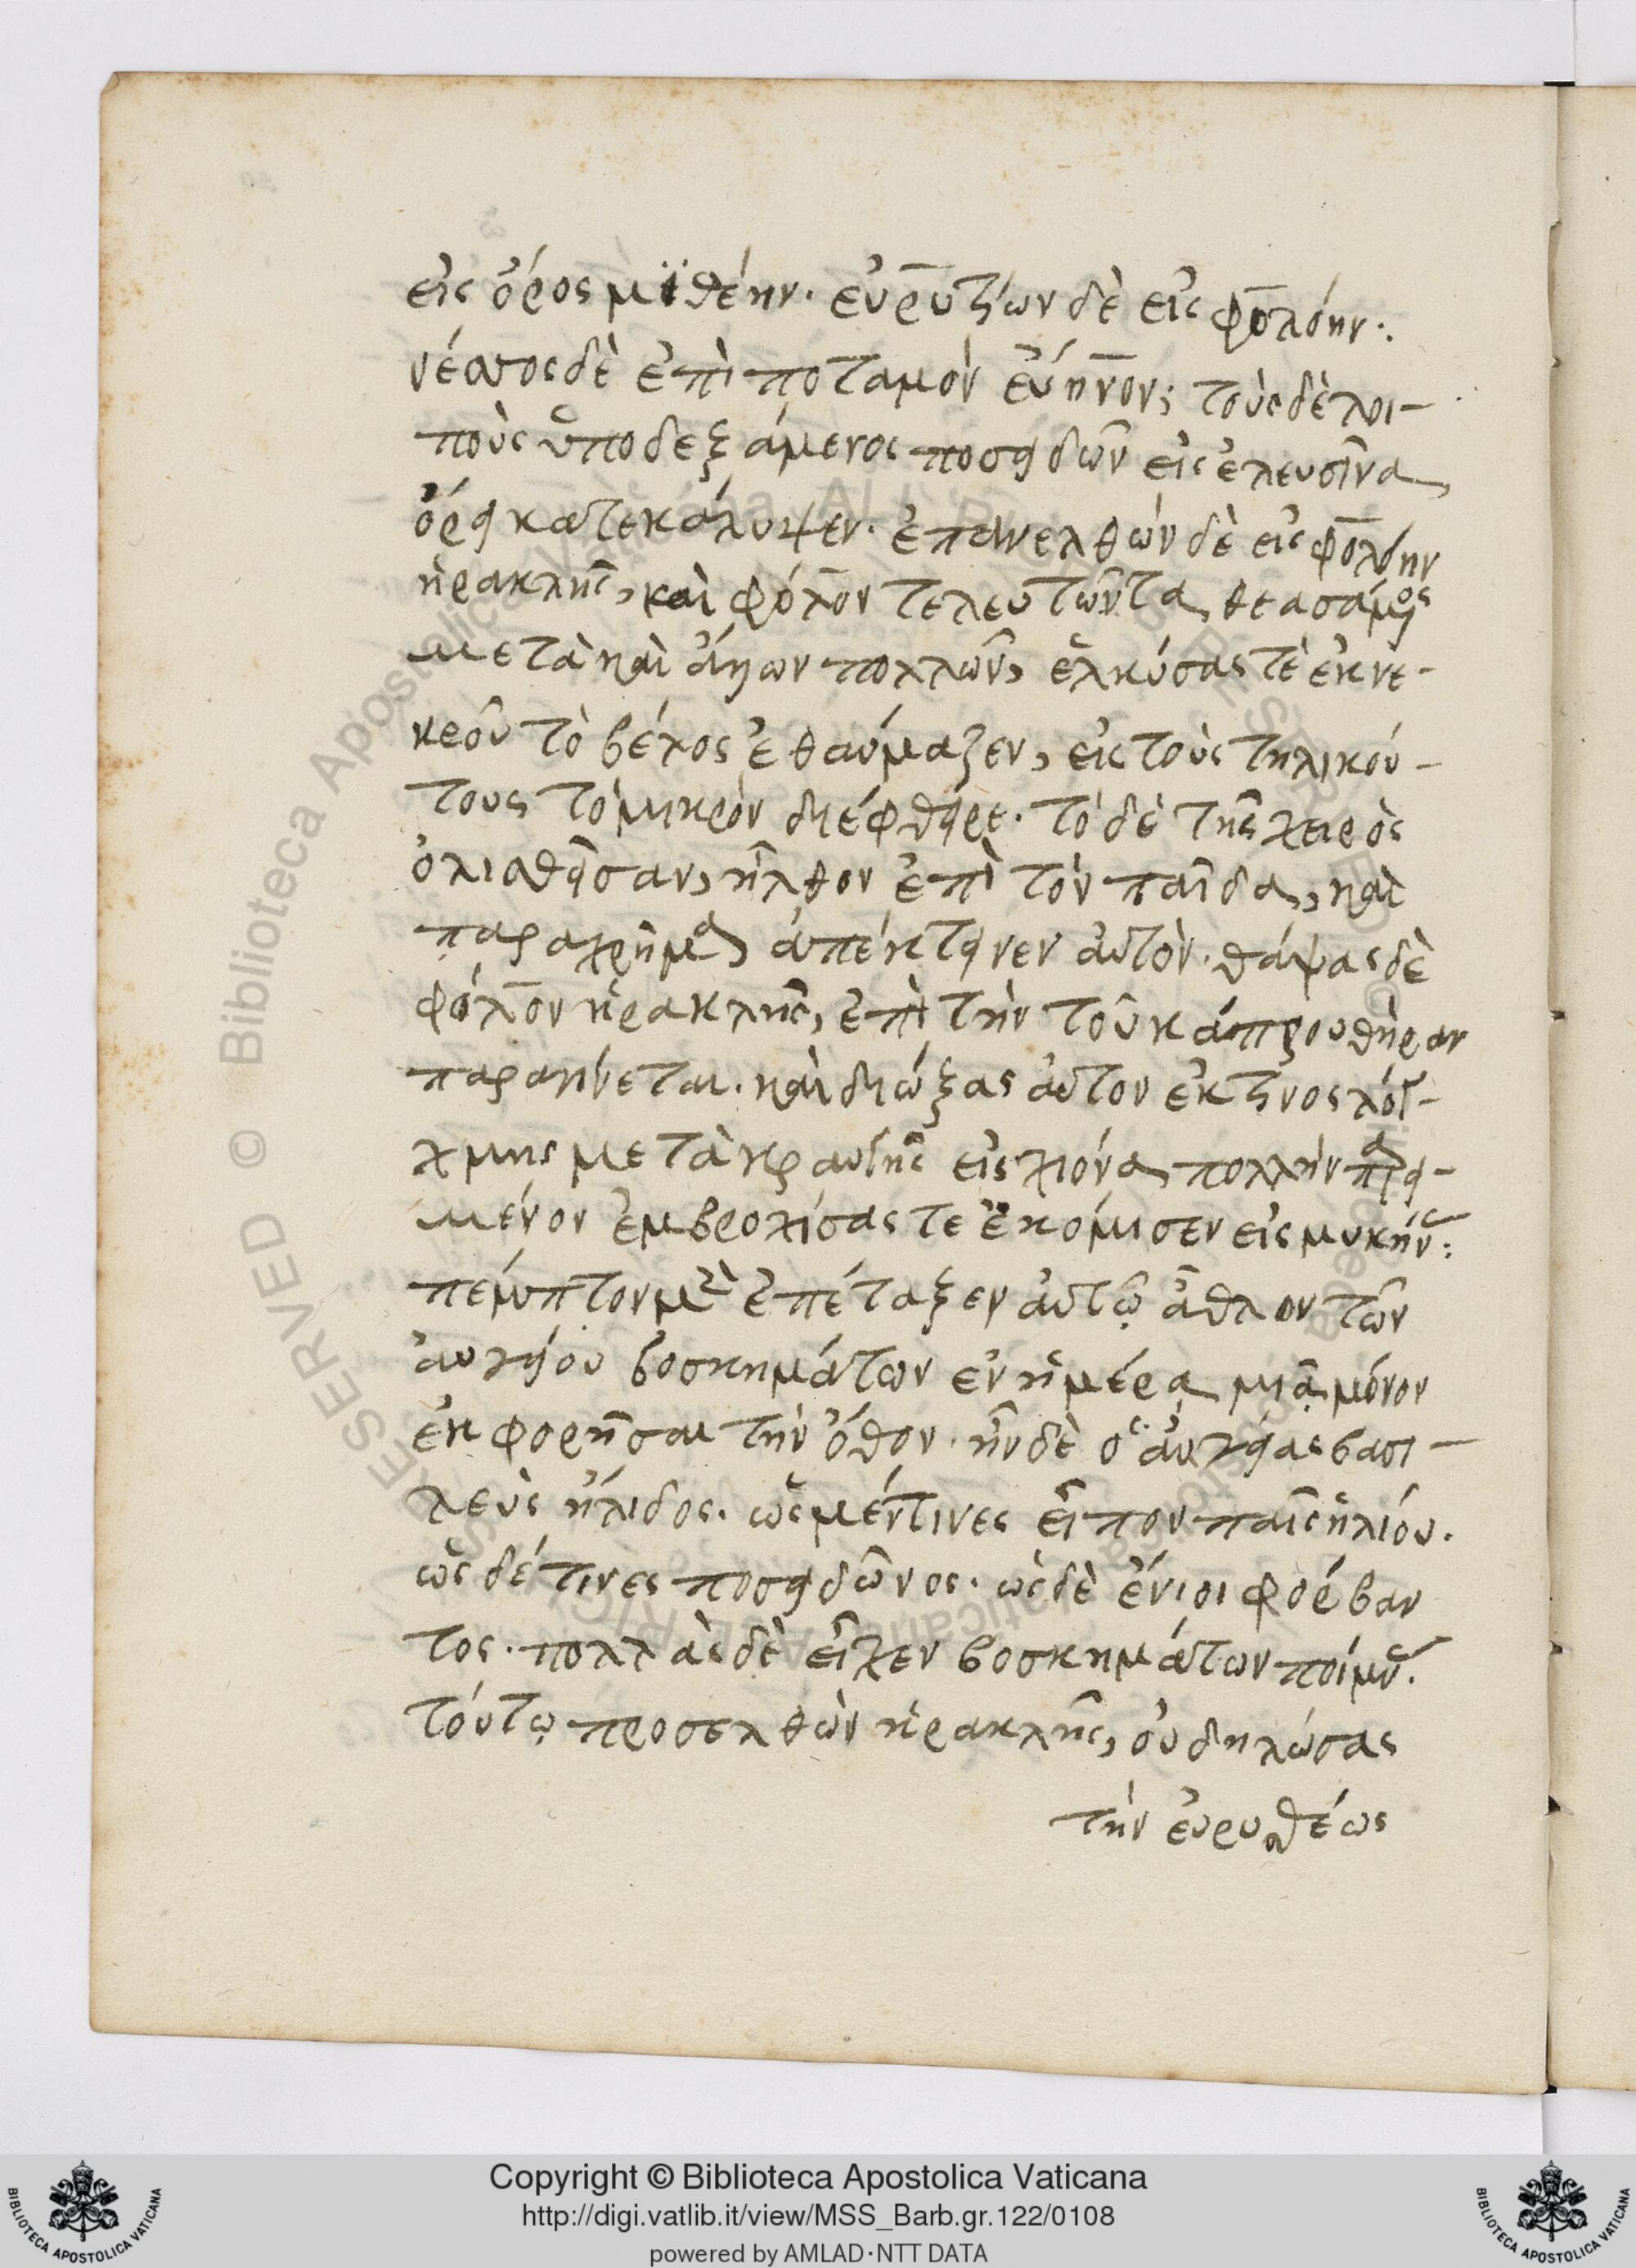 εἰς ὄρος μϊθέην. εὐρυτίων δὲ εἰς φολόην.
νέσσος δὲ ἐπὶ ποταμὸν εὔηνον; τοὺς δὲ λοι-
ποὺς ὑποδεξάμενος ποσειδῶν εἰς ἐλευσῖνα,
ὄρει κατεκάλυψεν. ἐπανελθὼν δὲ εἰς φολόην
ἡρακλῆς, καὶ φόλον τελευτῶντα θεασάμενος
μετὰ καὶ ἄλλων πολλῶν, ἑλκύσας τὲ ἐκ νε-
κροῦ τὸ βέλος ἐθαύμαζεν, εἰς τοὺς τηλικού-
τους τὸ μικρὸν διέφθειρε. τὸ δὲ τῆς χειρὸς
ὀλισθῆσαν, ἦλθον ἐπὶ τὸν παῖδα, καὶ
παραχρῆμα ἀπέκτεινεν αὐτόν. θάψας δὲ
φόλον ἡρακλῆς, ἐπὶ τὴν τοῦ κάπρου θήραν
παραγίνεται. καὶ διώξας αὐτὸν ἔκ τινος λό-
χμης μετὰ κραυγῆς εἰς χιόνα πολλὴν παρει-
μένον ἐμβροχίσας τε ἐκόμισεν εἰς μυκήνας:
πέμπτον μὲν ἐπέταξεν αὐτῷ ἆθλον τῶν
αὐγείου βοσκημάτων ἐν ἡμέρᾳ μιᾷ μόνον
ἐκφορῆσαι τὴν ὄθον. ἦν δὲ ὁ αὐγείας βασι-
λεὺς ἤλιδος. ὡς μέν τινες εἶπον παῖς ἡλίου.
ὡς δέ τινες ποσειδῶνος. ὡς δὲ ἔνιοι φόρβαν
τος. πολλὰς δὲ εἶχεν βοσκημάτων ποίμνας.
τούτῳ προσελθὼν ἡρακλῆς, οὐ δηλώσας
τὴν εὐρυσθέως